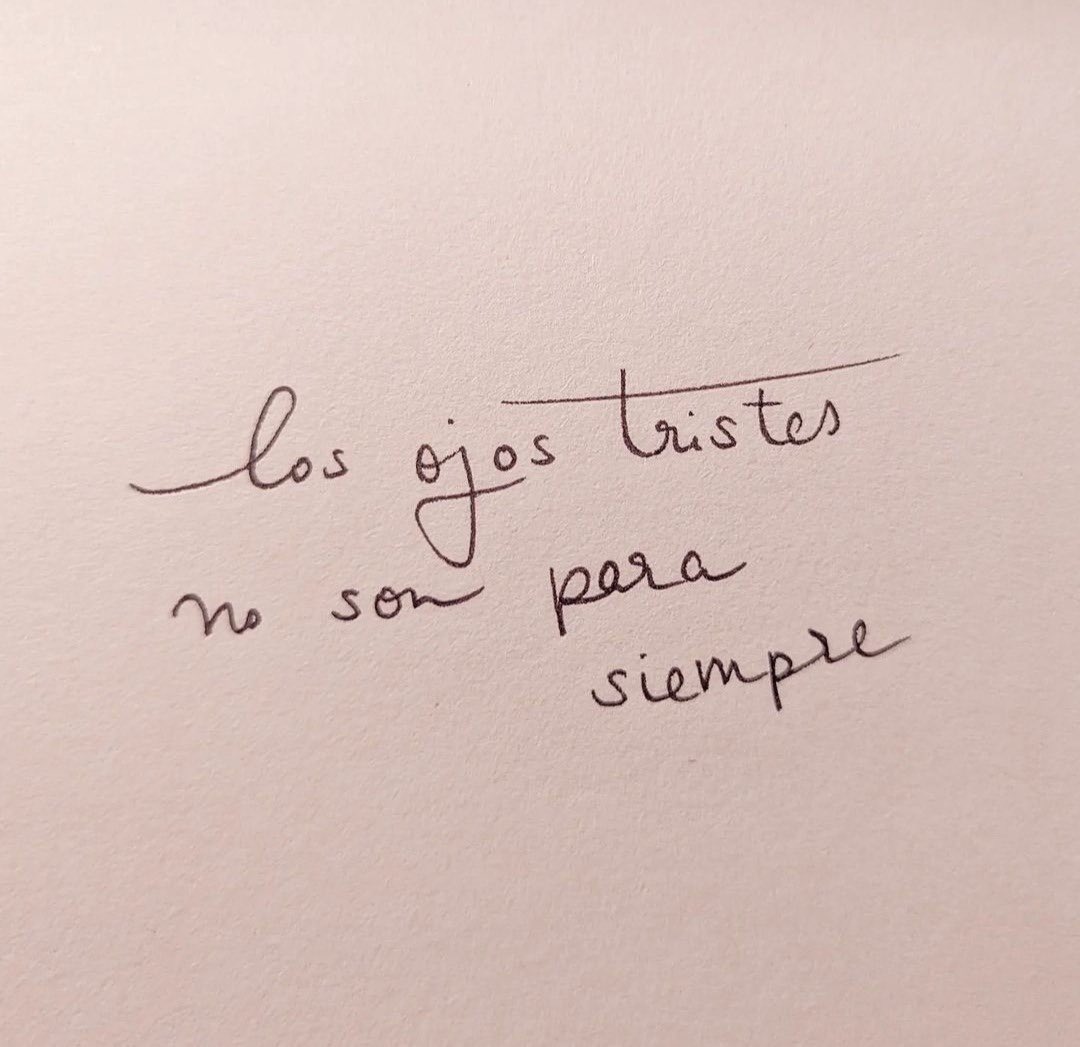 los ojos tristes
no son para
siempre